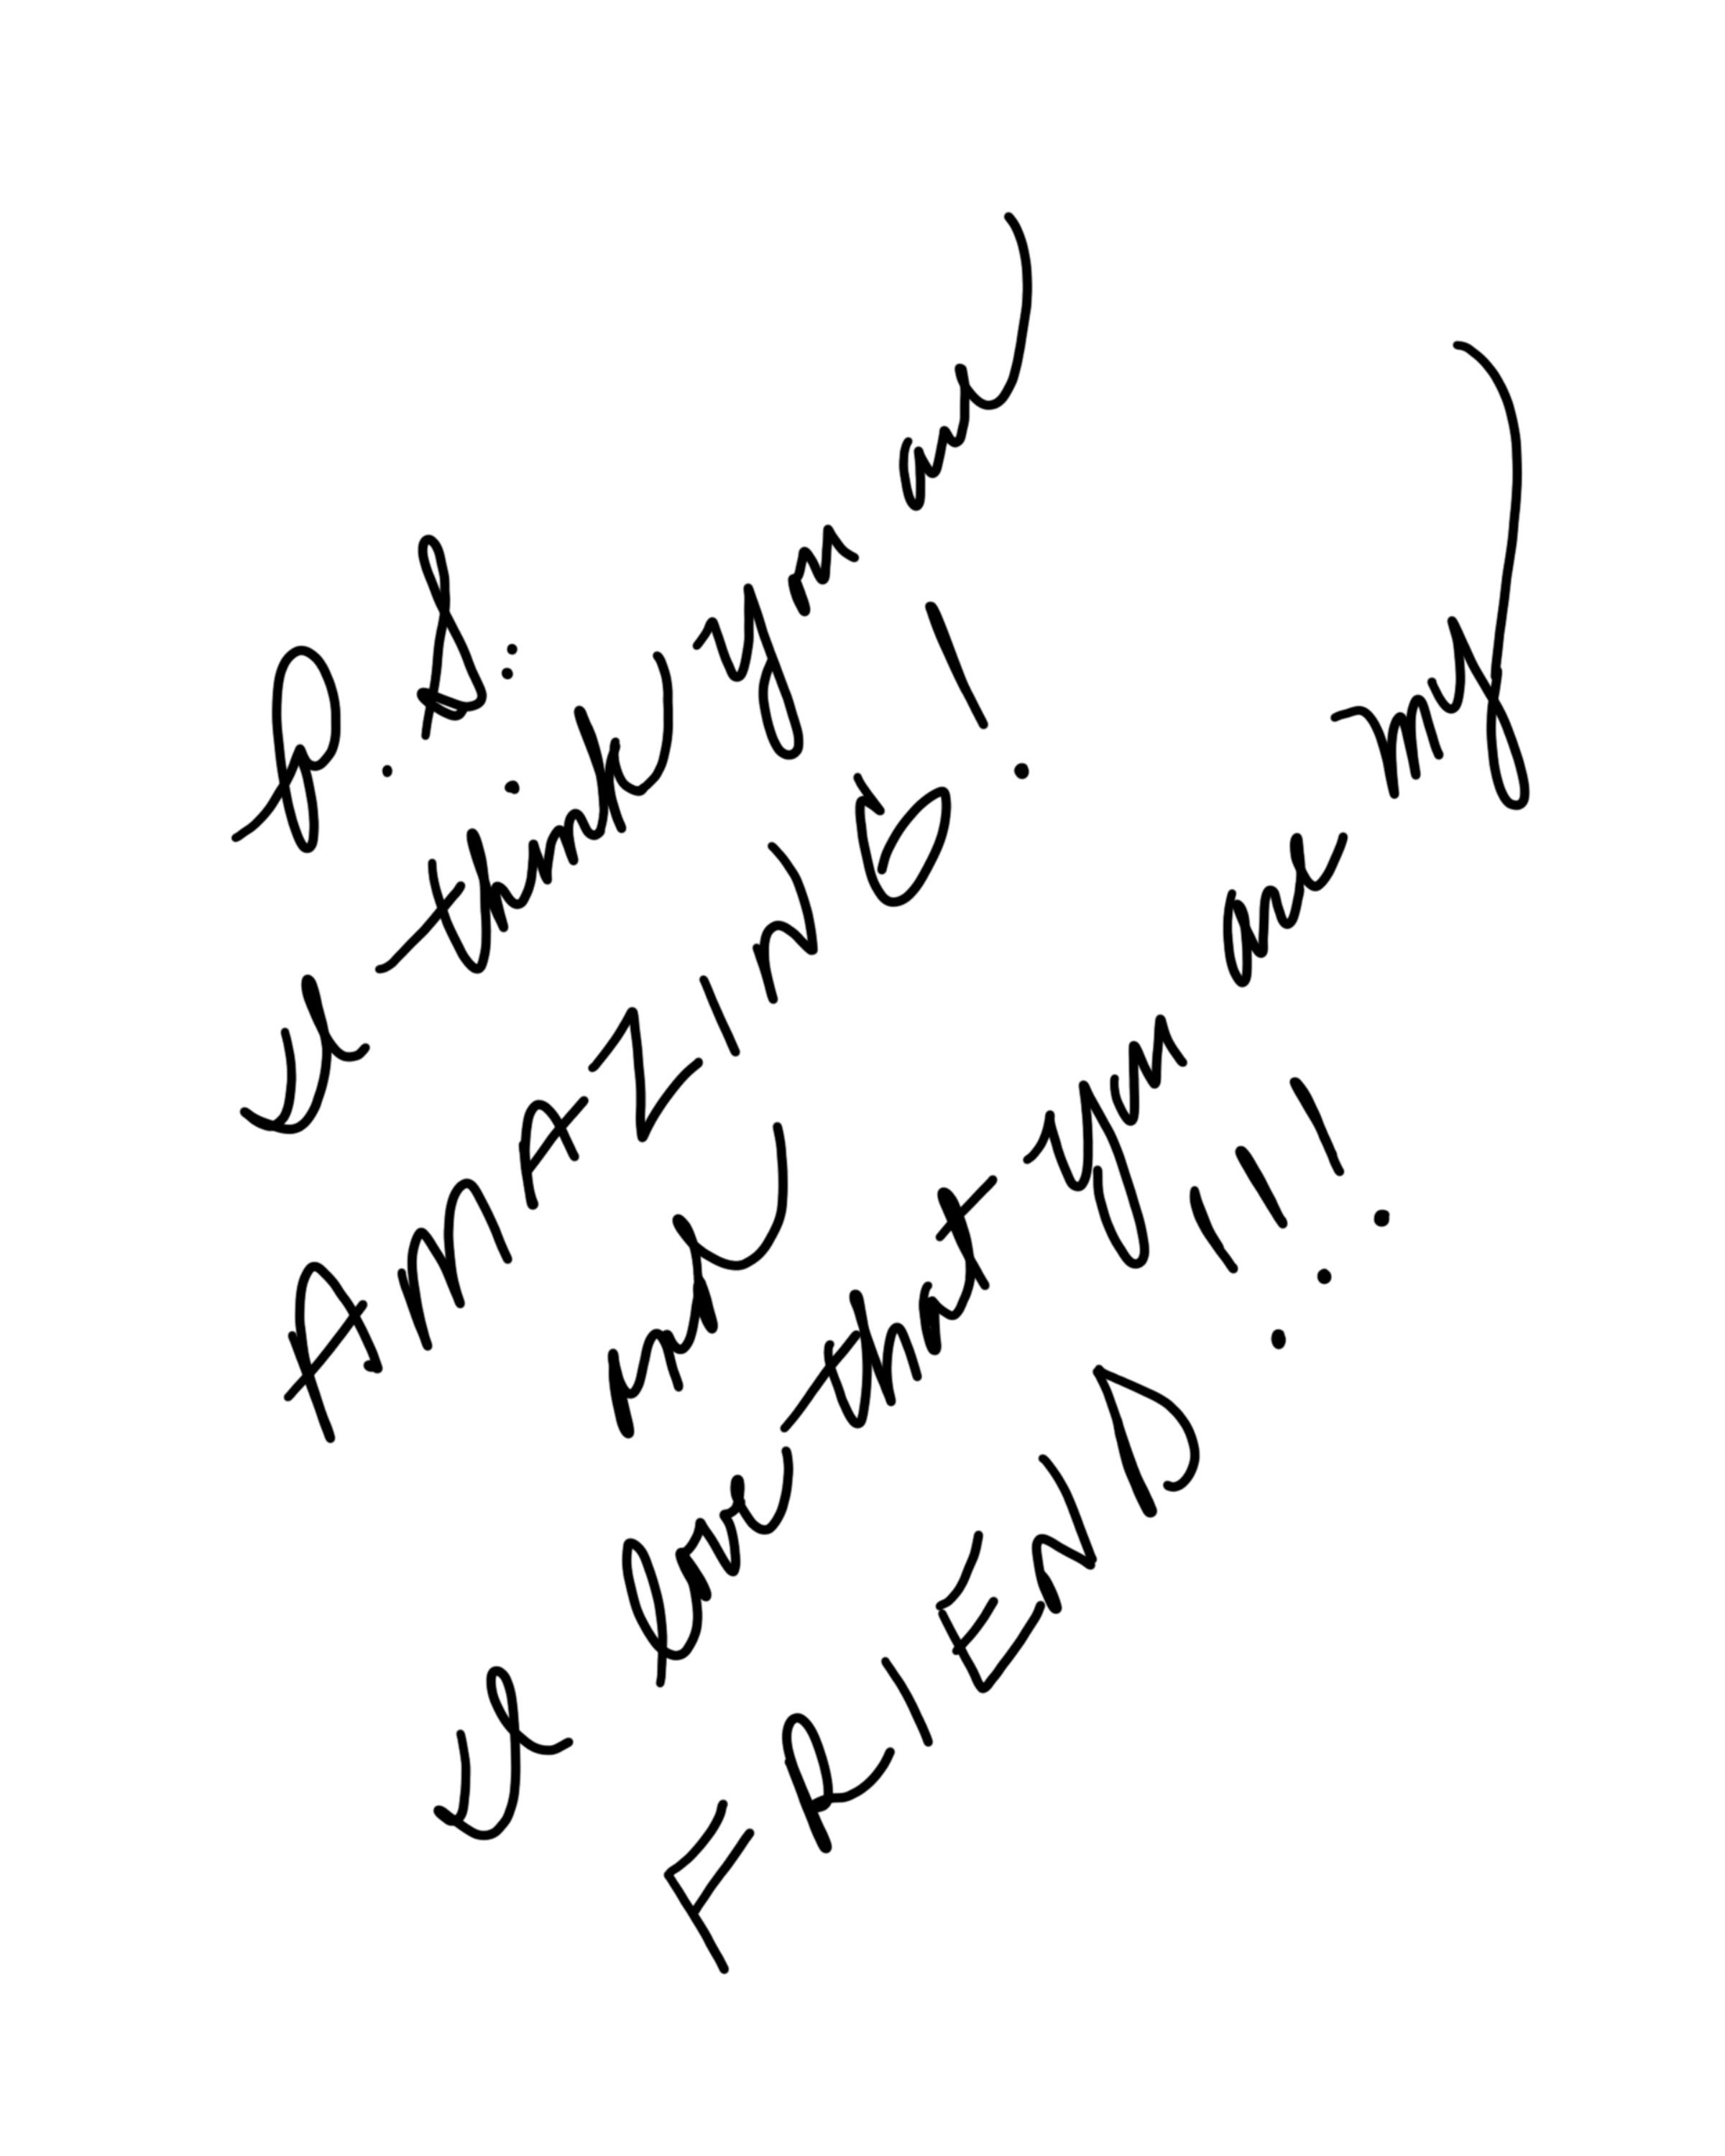 P.S.:
I think you are
AMAZING!
and
I love that you are my
FRIEND!!!